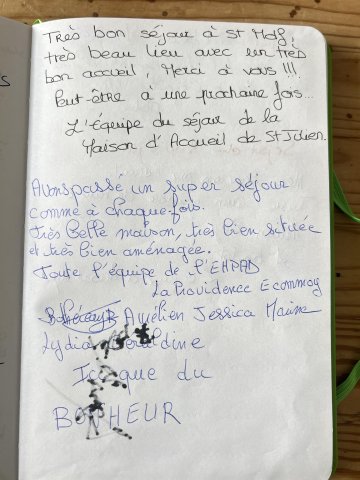 Très bon séjour à St Malo,
très beau lieu avec un très
bon accueil, Merci à vous !!!
Peut-être à une prochaine fois...
L'équipe du séjour de la
Maison d'Accueil de St Julien.
Avons passé un super séjour
comme à chaque fois.
très belle maison, très bien située
et très bien aménagée.
Toute l'équipe de l'EHPAD
La Providence Ecommoy
Aurélien Jessica Marine
Lydia Géraldine
que du
BONHEUR